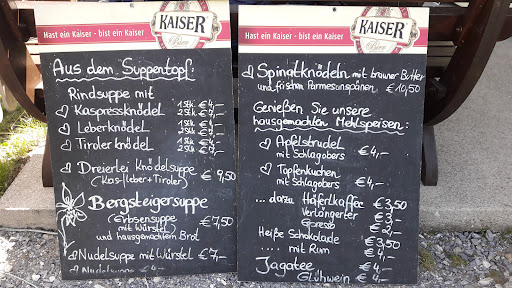 KAISER
Bier
Hast ein Kaiser - bist ein Kaiser
Aus dem Suppentopf:
Rindsuppe mit
Kaspressknödel 1 Stk. €4,-
2 Stk. €7,-
Leberknödel 1 Stk. €4,-
2 Stk. €7,-
Tiroler knödel 1 Stk. €4,-
2 Stk. €7,-
Dreierlei Knödelsuppe
(Kas-/Leber+Tiroler) €9,50
Bergsteigersuppe
(Erbsensuppe
mit Würstel) €7,50
und hausgemachtem Brot
Nudelsuppe mit Würstel €7,-
Nudelsuppe €4,-
KAISER
Bier
Hast ein Kaiser - bist ein Kaiser
Spinatknödeln mit brauner Butter
und frischen Parmesanspänen €10,50
Genießen Sie unsere
hausgemachten Mehlspeisen:
Apfelstrudel
mit Schlagobers €4,-
Topfenkuchen
mit Schlagobers €4,-
.... dazu Häferlkaffee €3,50
Verlängerter €3,-
Espresso €2,-
Heiße Schokolade €3,50
.... mit Rum €4,-
Jagatee €4,-
Glühwein €4,-